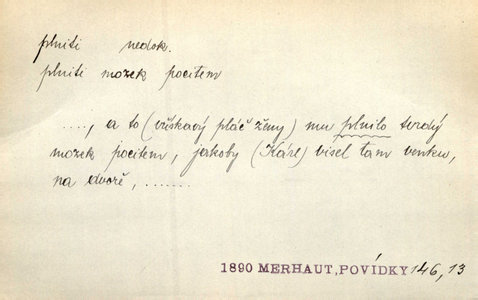 plniti nedok.
plniti mozek pocitem
...., a to (vřískavý pláč ženy) mu plnilo tvrdý
mozek pocitem, jakoby (Kárl) visel tam venku,
na dvoře, .......
1890 MERHAUT,POVÍDKY 146,13